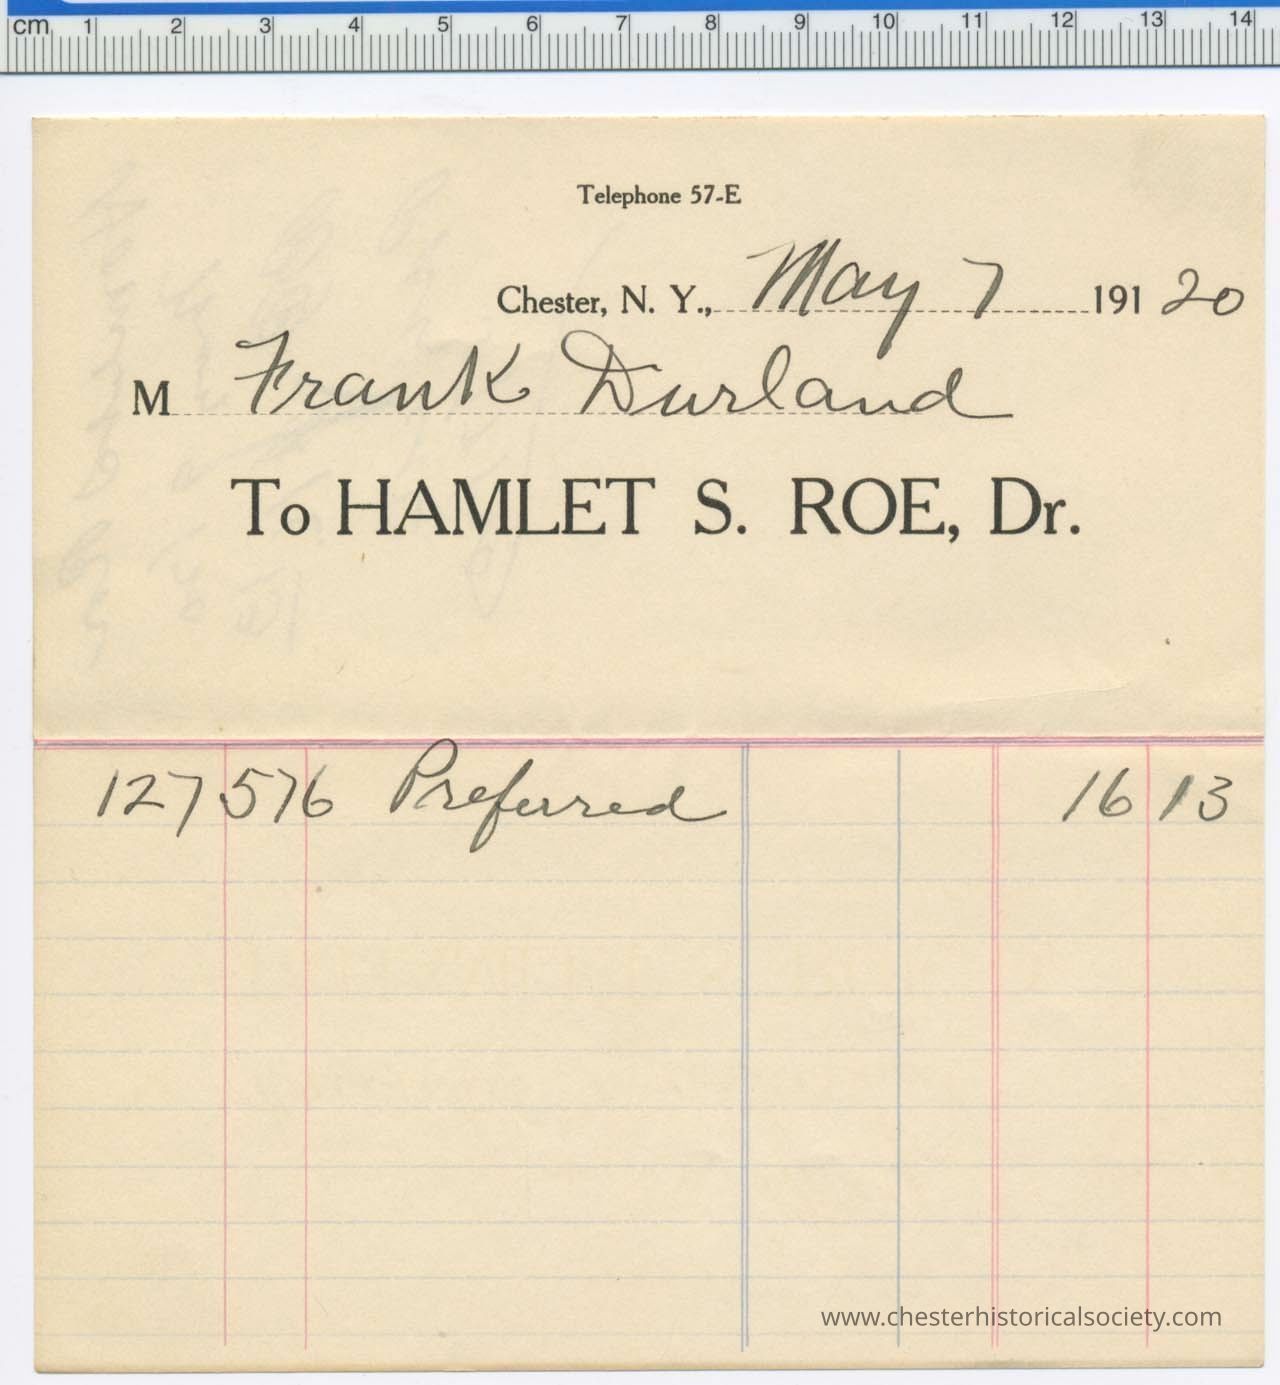 cm 1 2 3 4 5 6 7 8 9 10 11 12 13 14
Telephone 57-E
Chester, N. Y., May 7 191 20
M Frank Durland
To HAMLET S. ROE, Dr.
127 576 Preferred 16 13
www.chesterhistoricalsociety.com